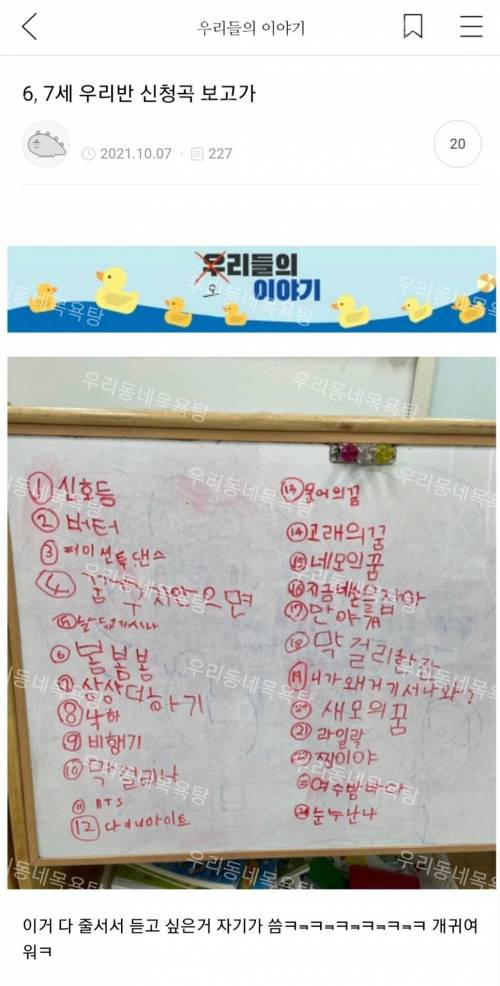 우리들의 이야기
6, 7세 우리반 신청곡 보고가
2021.10.07 · 227
20
우리들의
오
이야기
우리동네목욕탕
① 신호등
② 버터
③ 퍼미션 투 댄스
④ 꿈꾸지않으면
⑥ 봄봄봄
⑦ 상상더하기
⑧ 낙하
⑨ 비행기
⑩ 막걸리나
⑪ BTS
⑫ 다이너마이트
⑬ 문어의꿈
⑭ 고래의꿈
⑮ 네모의꿈
⑯ 지금 내 손을 잡아
⑰ 만약에
⑱ 막걸리한잔
⑲ 니가왜거기서나와?
⑳ 새모의꿈
㉑ 라일락
㉒ 찐이야
여수밤바다
㉔ 눈누난나
이거 다 줄서서 듣고 싶은거 자기가 씀ㅋㅋㅋㅋㅋㅋㅋ 개귀여
워ㅋ